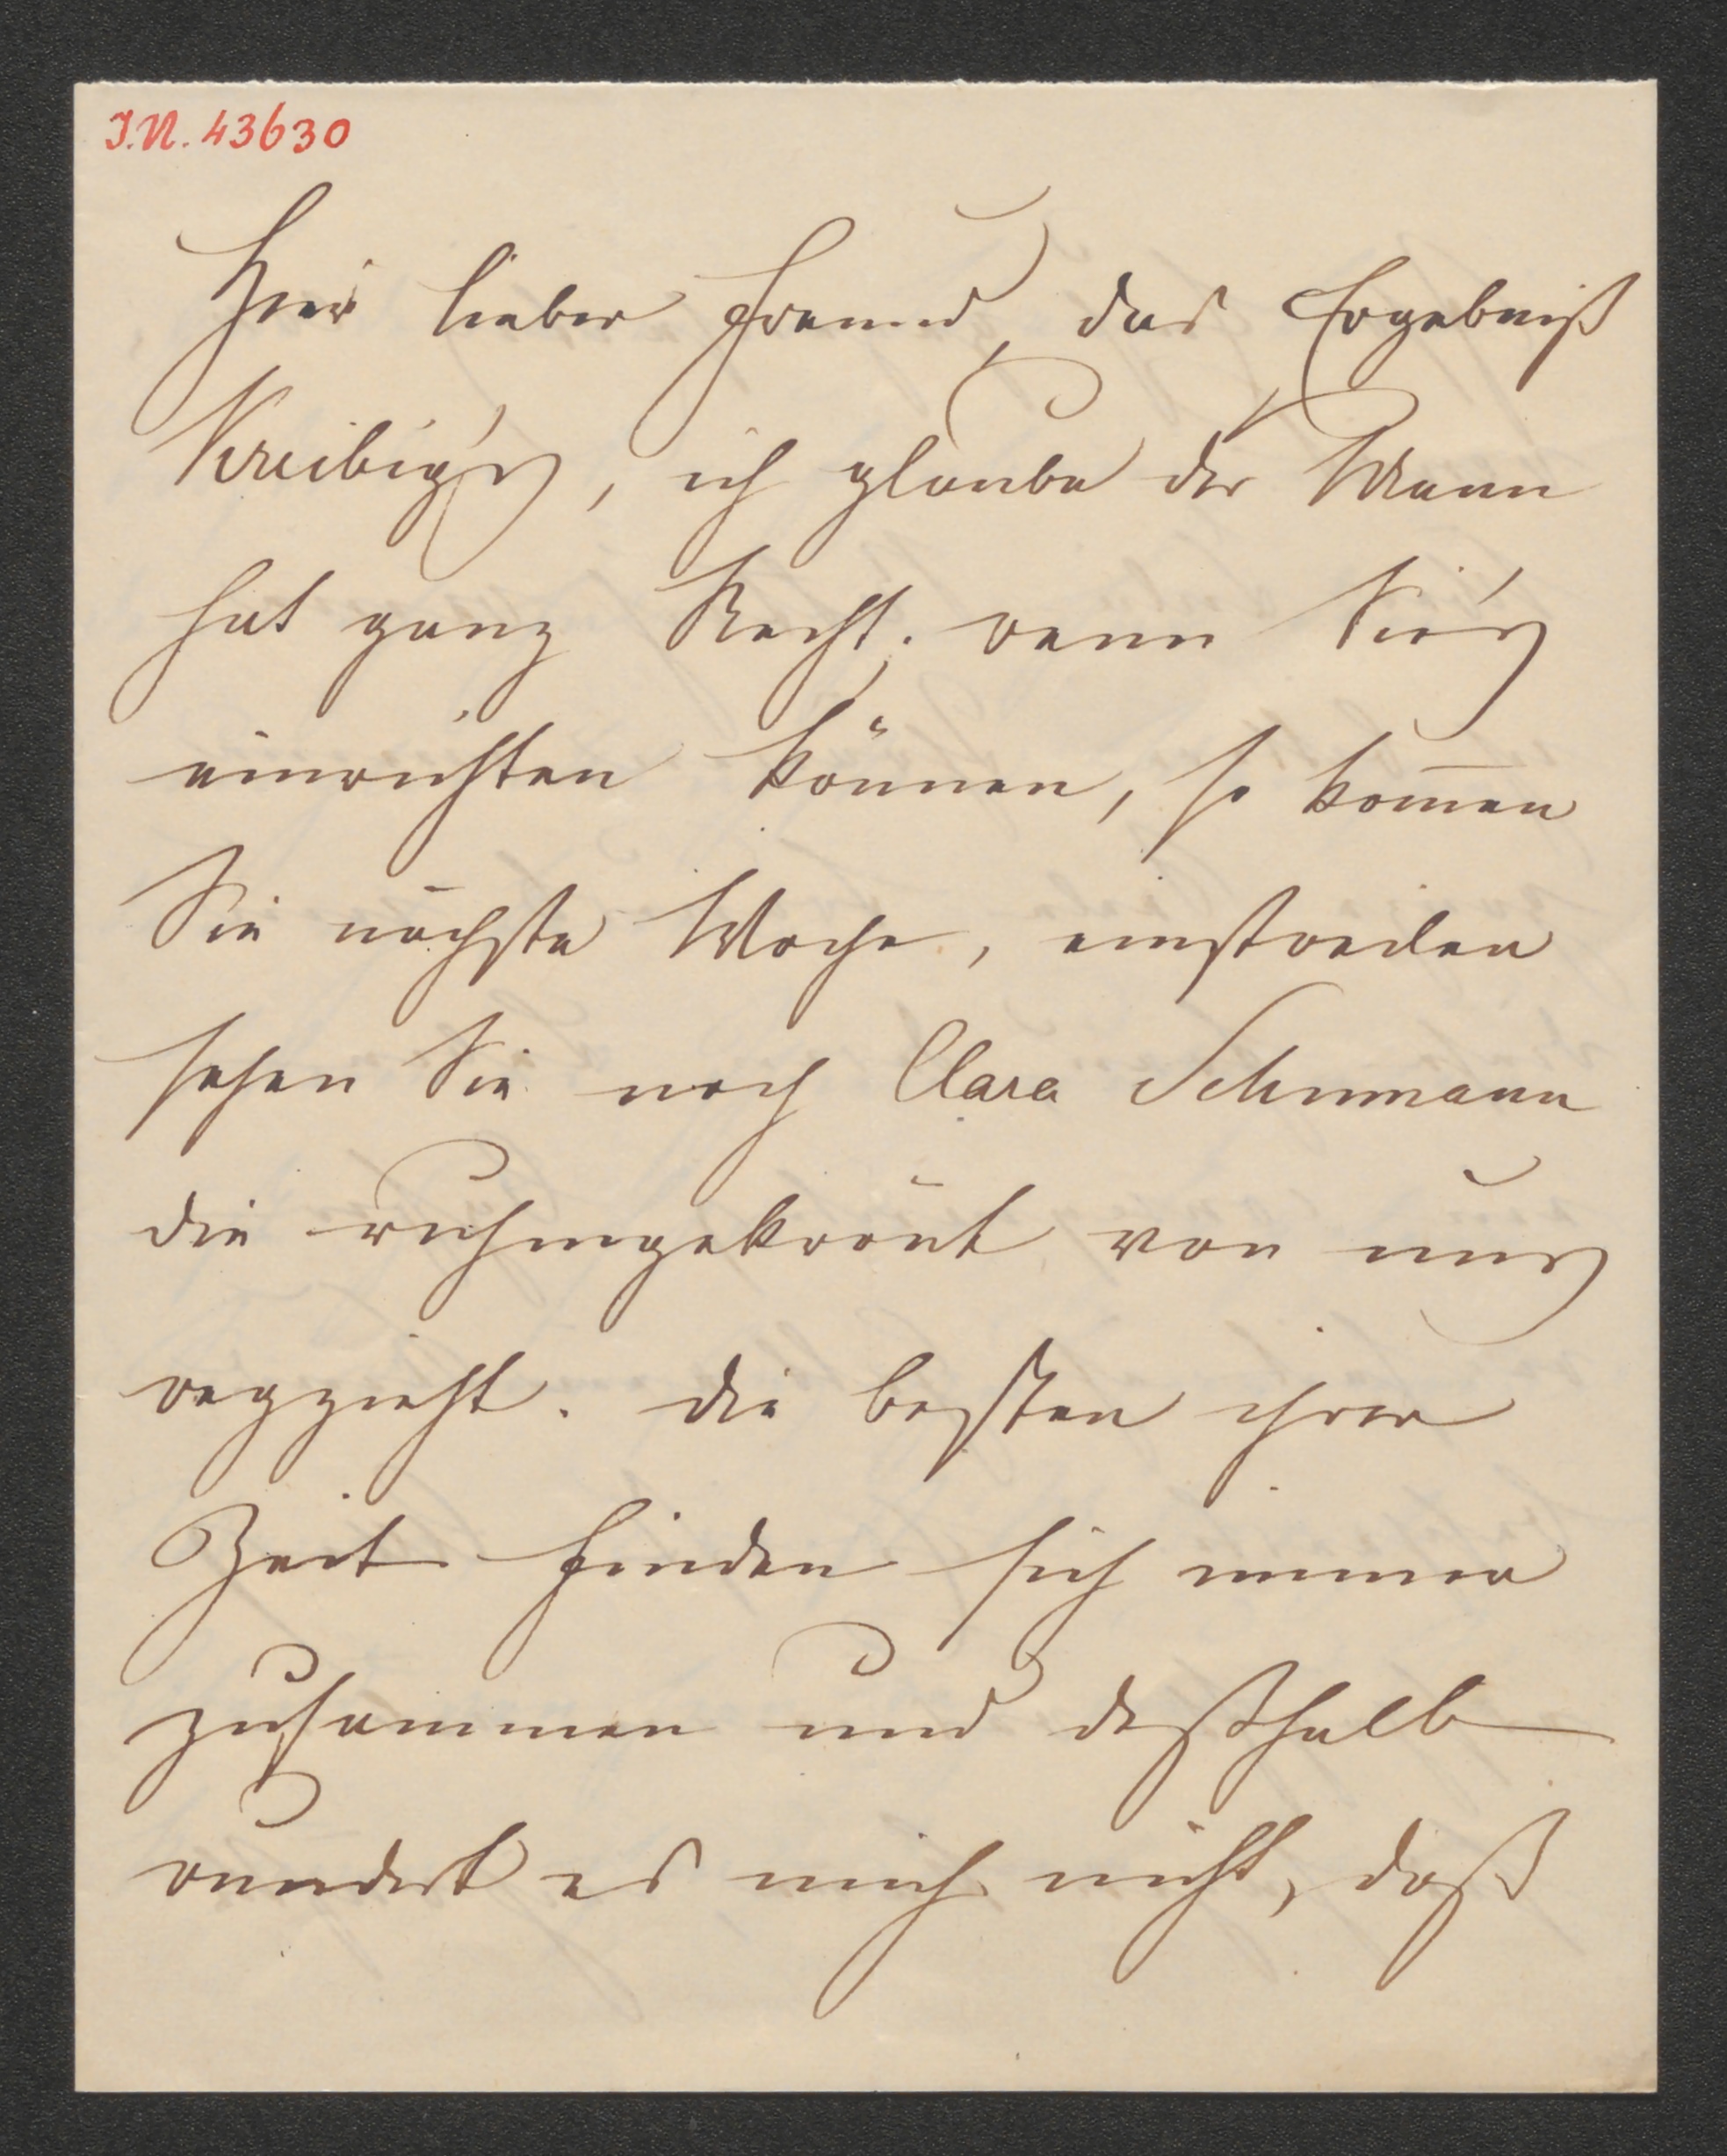 I.N. 43630
Hier lieber Freund, das Ergebniß
Kreibig's, ich glaube der Mann
hat ganz Recht; wenn Sie's
einrichten können, so kom̅en
Sie nächste Woche, einstweilen
sehen Sie noch Clara Schumann
die ruhmgekrönt von uns
wegzieht. Die besten ihrer
Zeit finden sich immer
zusammen und deßhalb
wundert es mich nicht, daß